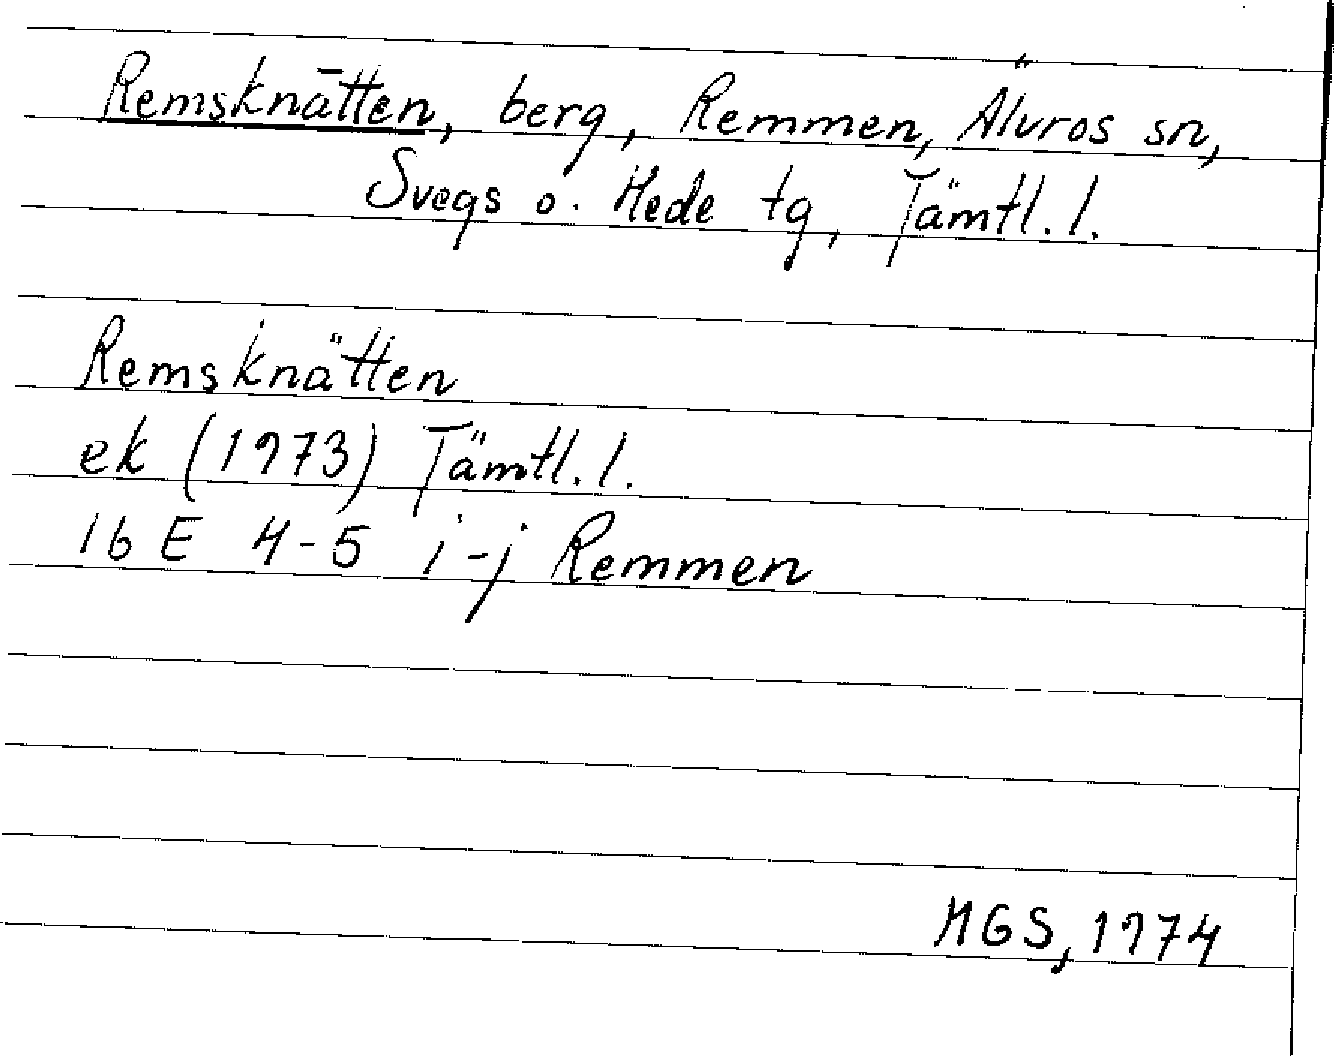 Remsknätten, berg, Remmen, Älvros sn,
Svegs o. Hede tg, Jämtl. l.
Remsknätten
ek (1973) Jämtl. l.
16 E 4-5 i-j Remmen
HGS, 1974